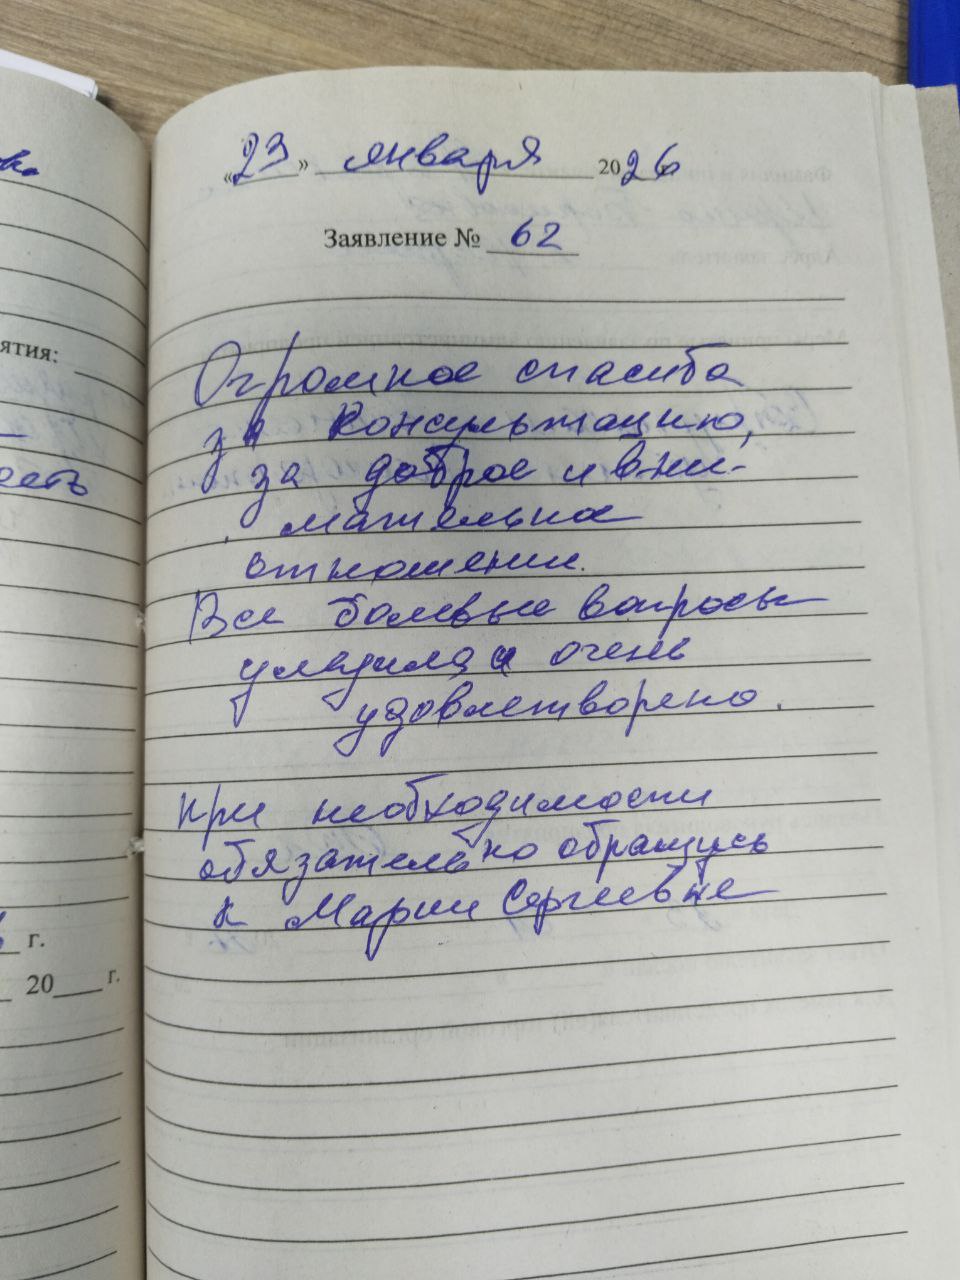 «23» января 2026
Заявление № 62
Огромное спасиба
за консультацию,
за доброе и вни-
мательное
отношении.
Все болевые вопросы
уладила и очень
удовлетворена.
При необходимости
обязательно обращусь
к Марии Сергеевне
ятия:
г.
20 г.